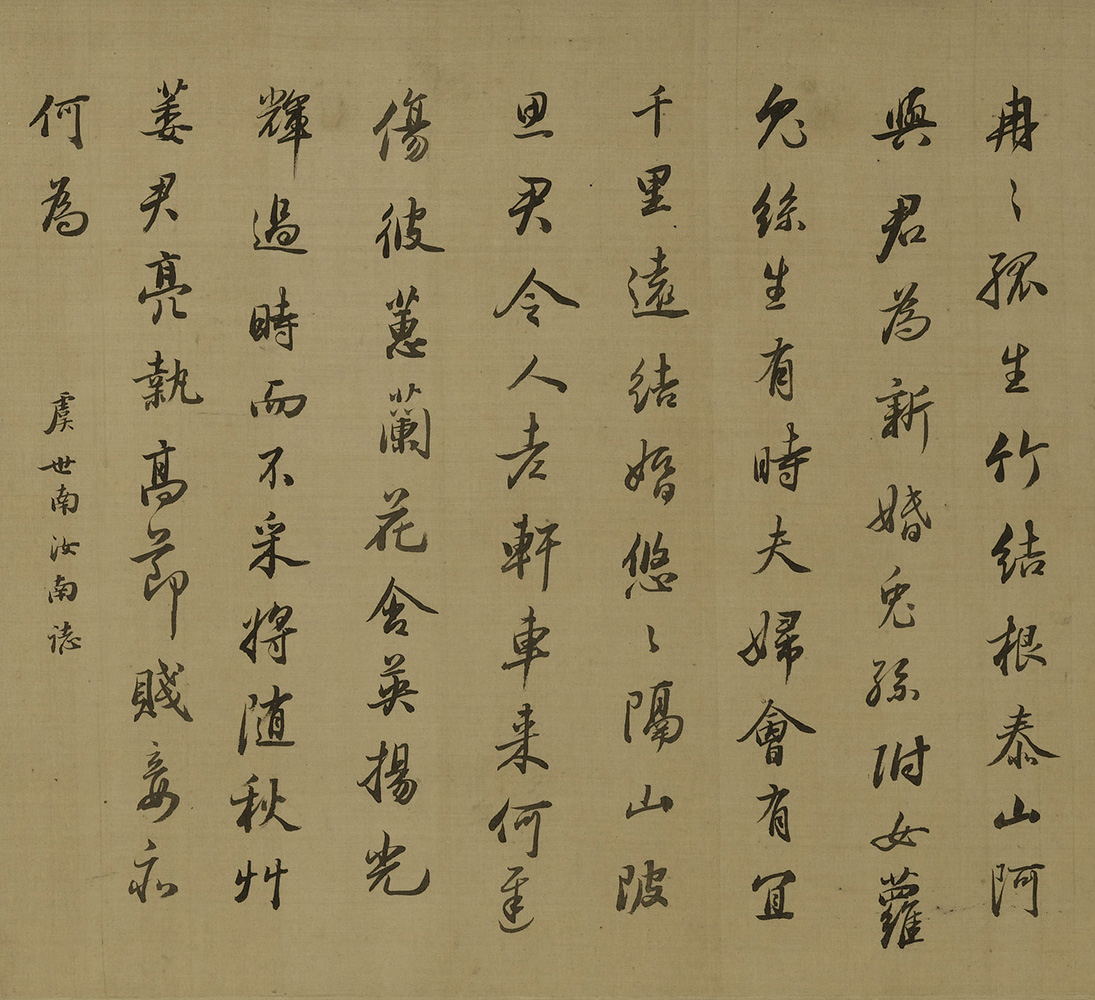 冉〻孤生竹結根泰山阿
與君為新婚兔絲附女蘿
兔絲生有時夫婦會有宜
千里遠結婚悠〻隔山陂
思君令人老軒車来何遲
傷彼蕙蘭花含英揚光
輝過時而不采將随秋艸
萎君亮執高節賤妾亦
何為
虞世南汝南誌